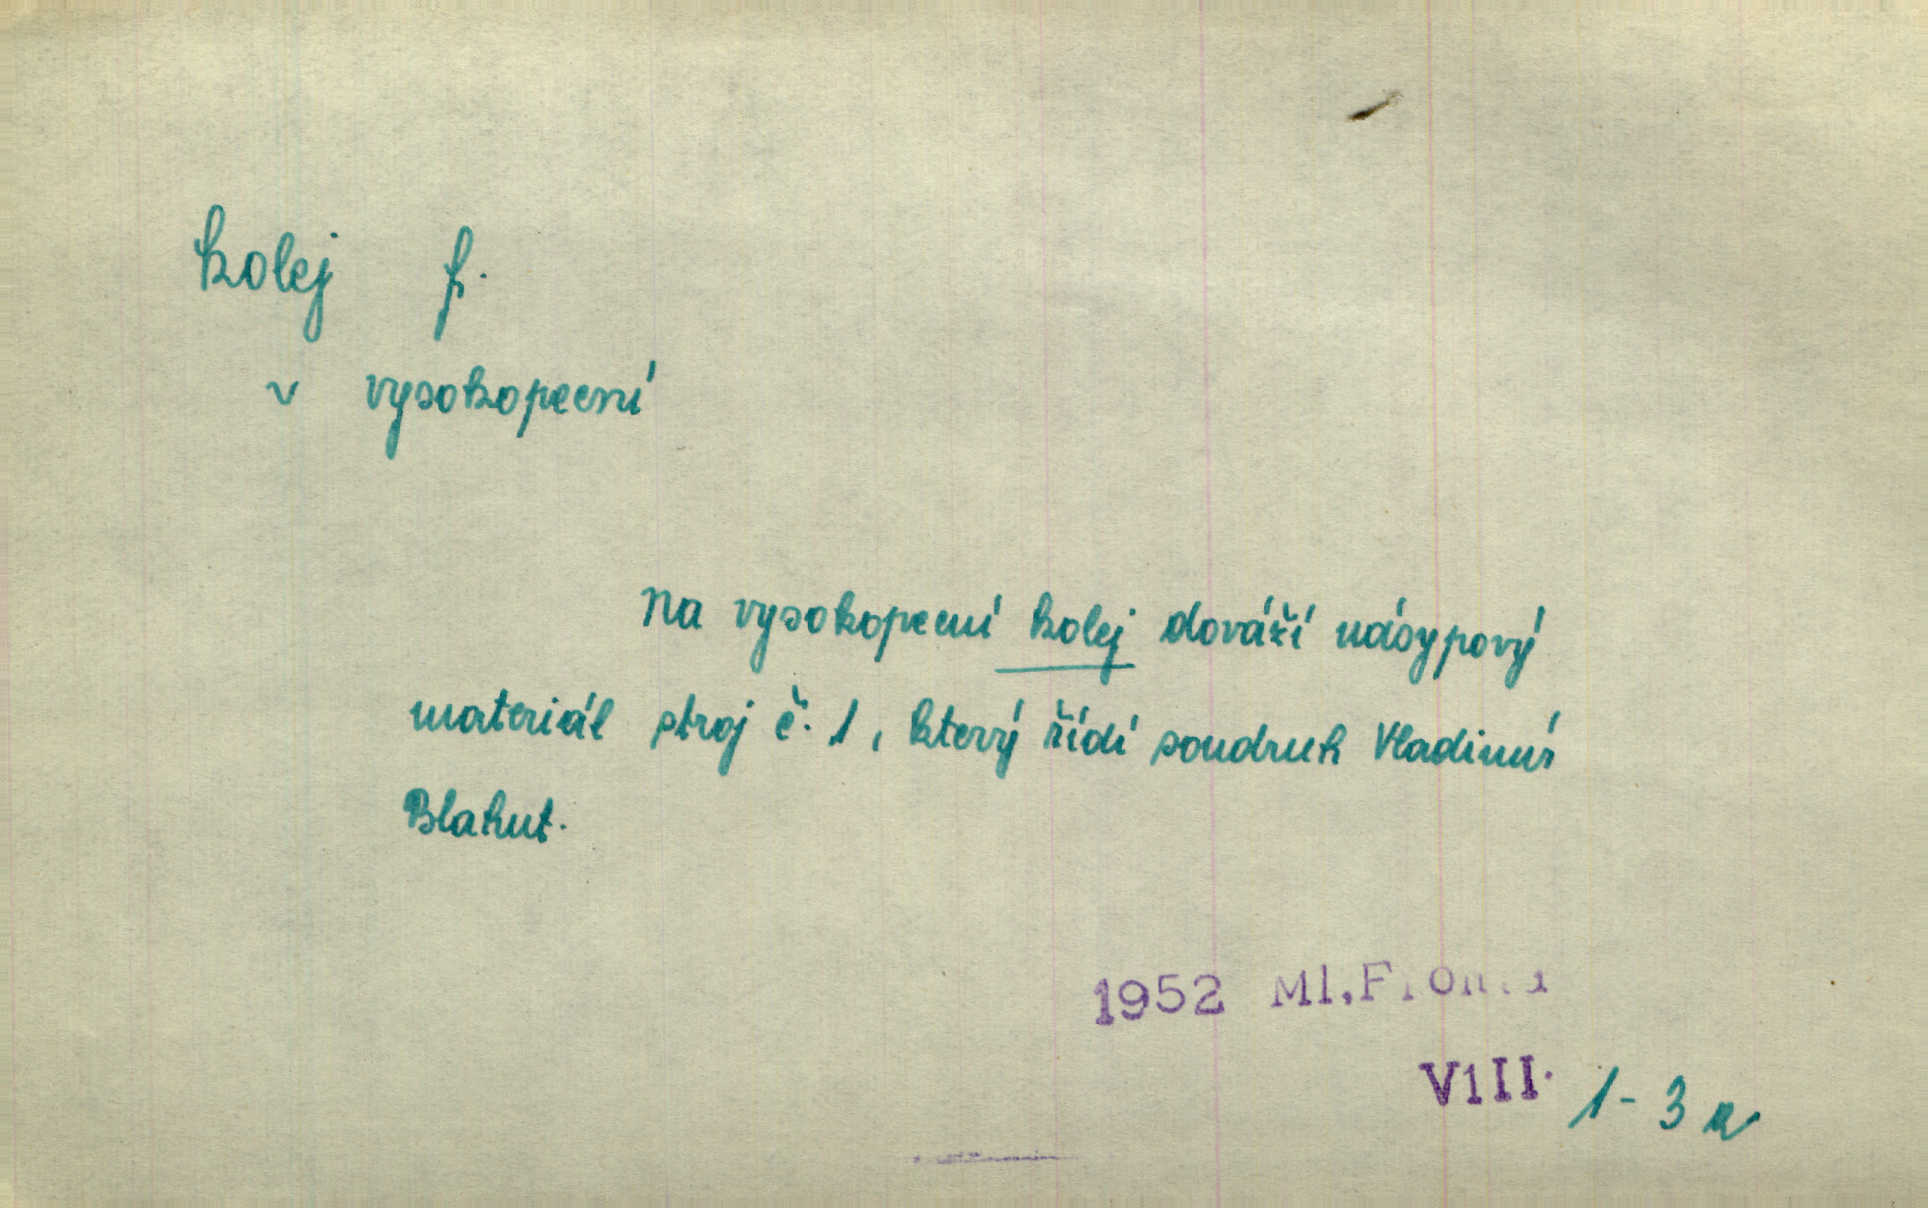 kolej f.
v vysokopecní
Na vysokopecní kolej dováží násypový
materiál stroj č. 1, který řídí soudruh Vladimír
Blahut.
1952 Ml.Fronta
VIII. 1-3 a